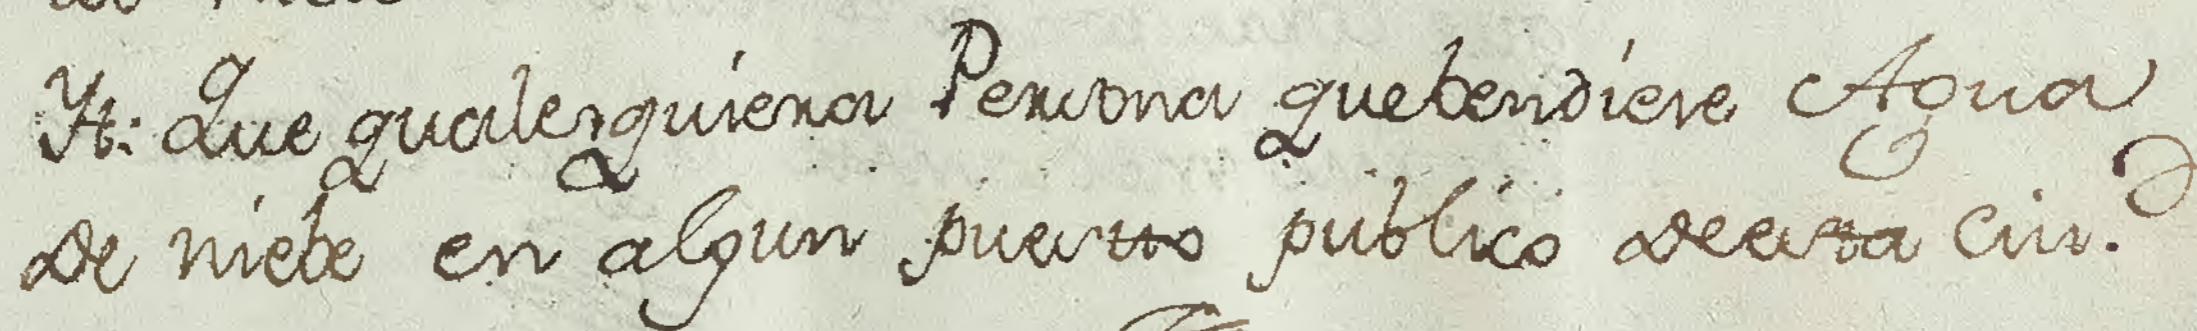 Yt: Que qualesquiera Persona que bendiere Agua
de niebe en algun puesto publico de esta Ciu.d